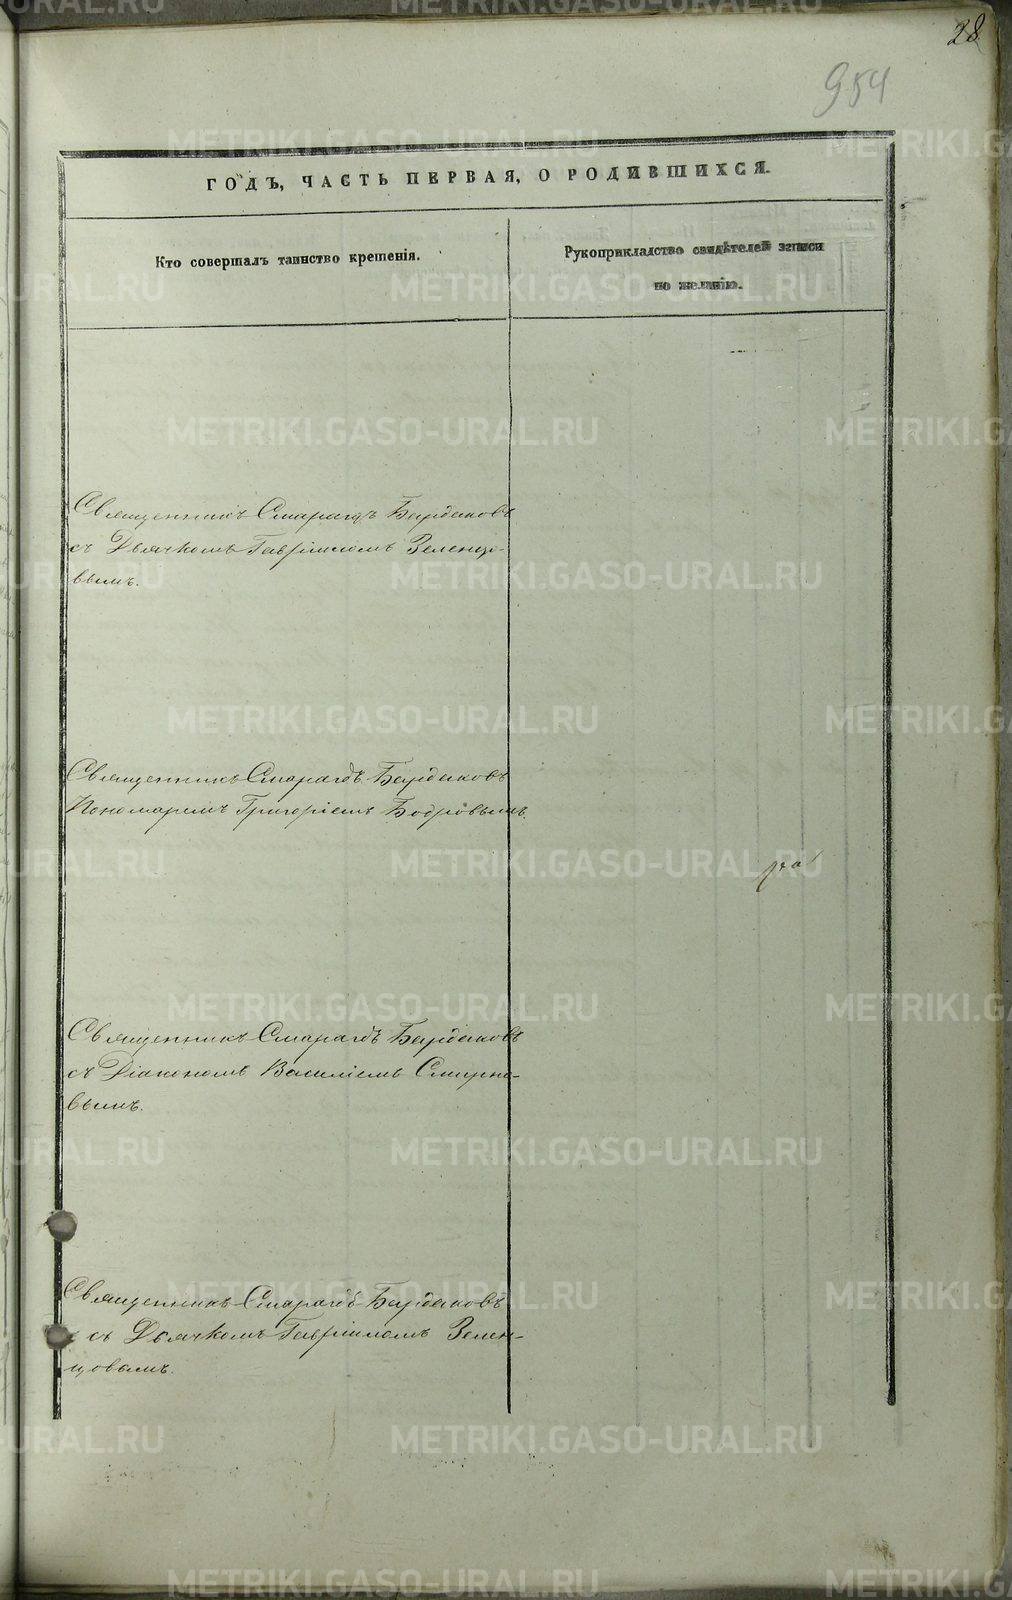 28
954
ГОДЪ, ЧАСТЬ ПЕРВАЯ, О РОДИВШИХСЯ.
Кто совершалъ таинство крещенія.
Рукоприкладство свидѣтелей записи
по желанію.
Священникъ Смарагдъ Бурдаковъ
съ Дьячкомъ Гавріиломъ Зеленцо-
вымъ.
Священникъ Смарагдъ Бурдаковъ
Пономаремъ Григоріемъ Бодровымъ.
Священникъ Смарагдъ Бурдаковъ
съ Діакономъ Василіемъ Смирно-
вымъ.
Священникъ Смарагдъ Бурдаковъ
съ Дьячкомъ Гавріиломъ Зелен-
цовымъ.
METRIKI.GASO-URAL.RU